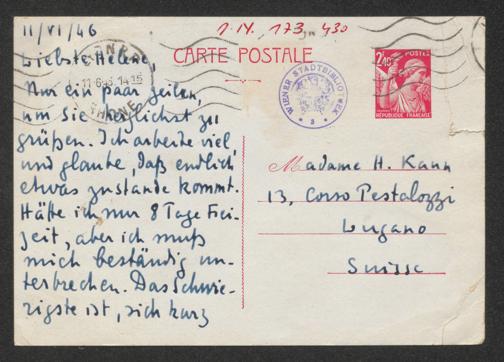 11/VI/46
1. IX. 173, 430
CARTE POSTALE
11-6-46 14.15
RHÔNE
WIENER STADTBIBLIOTHEK
POSTES
2F40
RÉPUBLIQUE FRANÇAISE
Liebste Helene,
Nur ein paar Zeilen,
um Sie herzlichst zu
grüßen. Ich arbeite viel
und glaube, daß endlich
etwas zustande kommt.
Hätte ich nur 8 Tage Frei-
zeit, aber ich muß
mich beständig un-
terbrechen. Das Schwie-
rigste ist, sich kurz
Madame H. Kann
13, Corso Pestalozzi
Lugano
Suisse